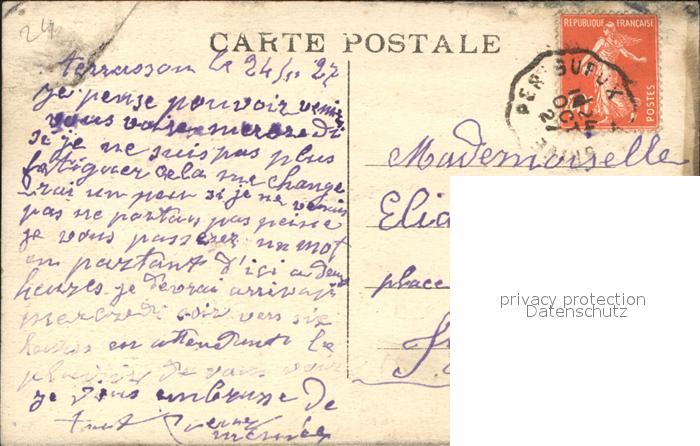 24
CARTE POSTALE
REPUBLIQUE FRANÇAISE
POSTES
terrasson le 24/ 27
je pense pouvoir venir
vous voir mercredi
si je ne suis pas plus
fatiguer cela me change
rai un peu si je ne venais
pas ne portan pas peine
je vous passerez un mot
en partant d'isi a deux
heures je devrai arriva
mercredi soir vers six
heures en attendant le
plaisir de vous voir
je vous embrasse de
tout
Mademoiselle
Elia
place
privacy protection
Datenschutz